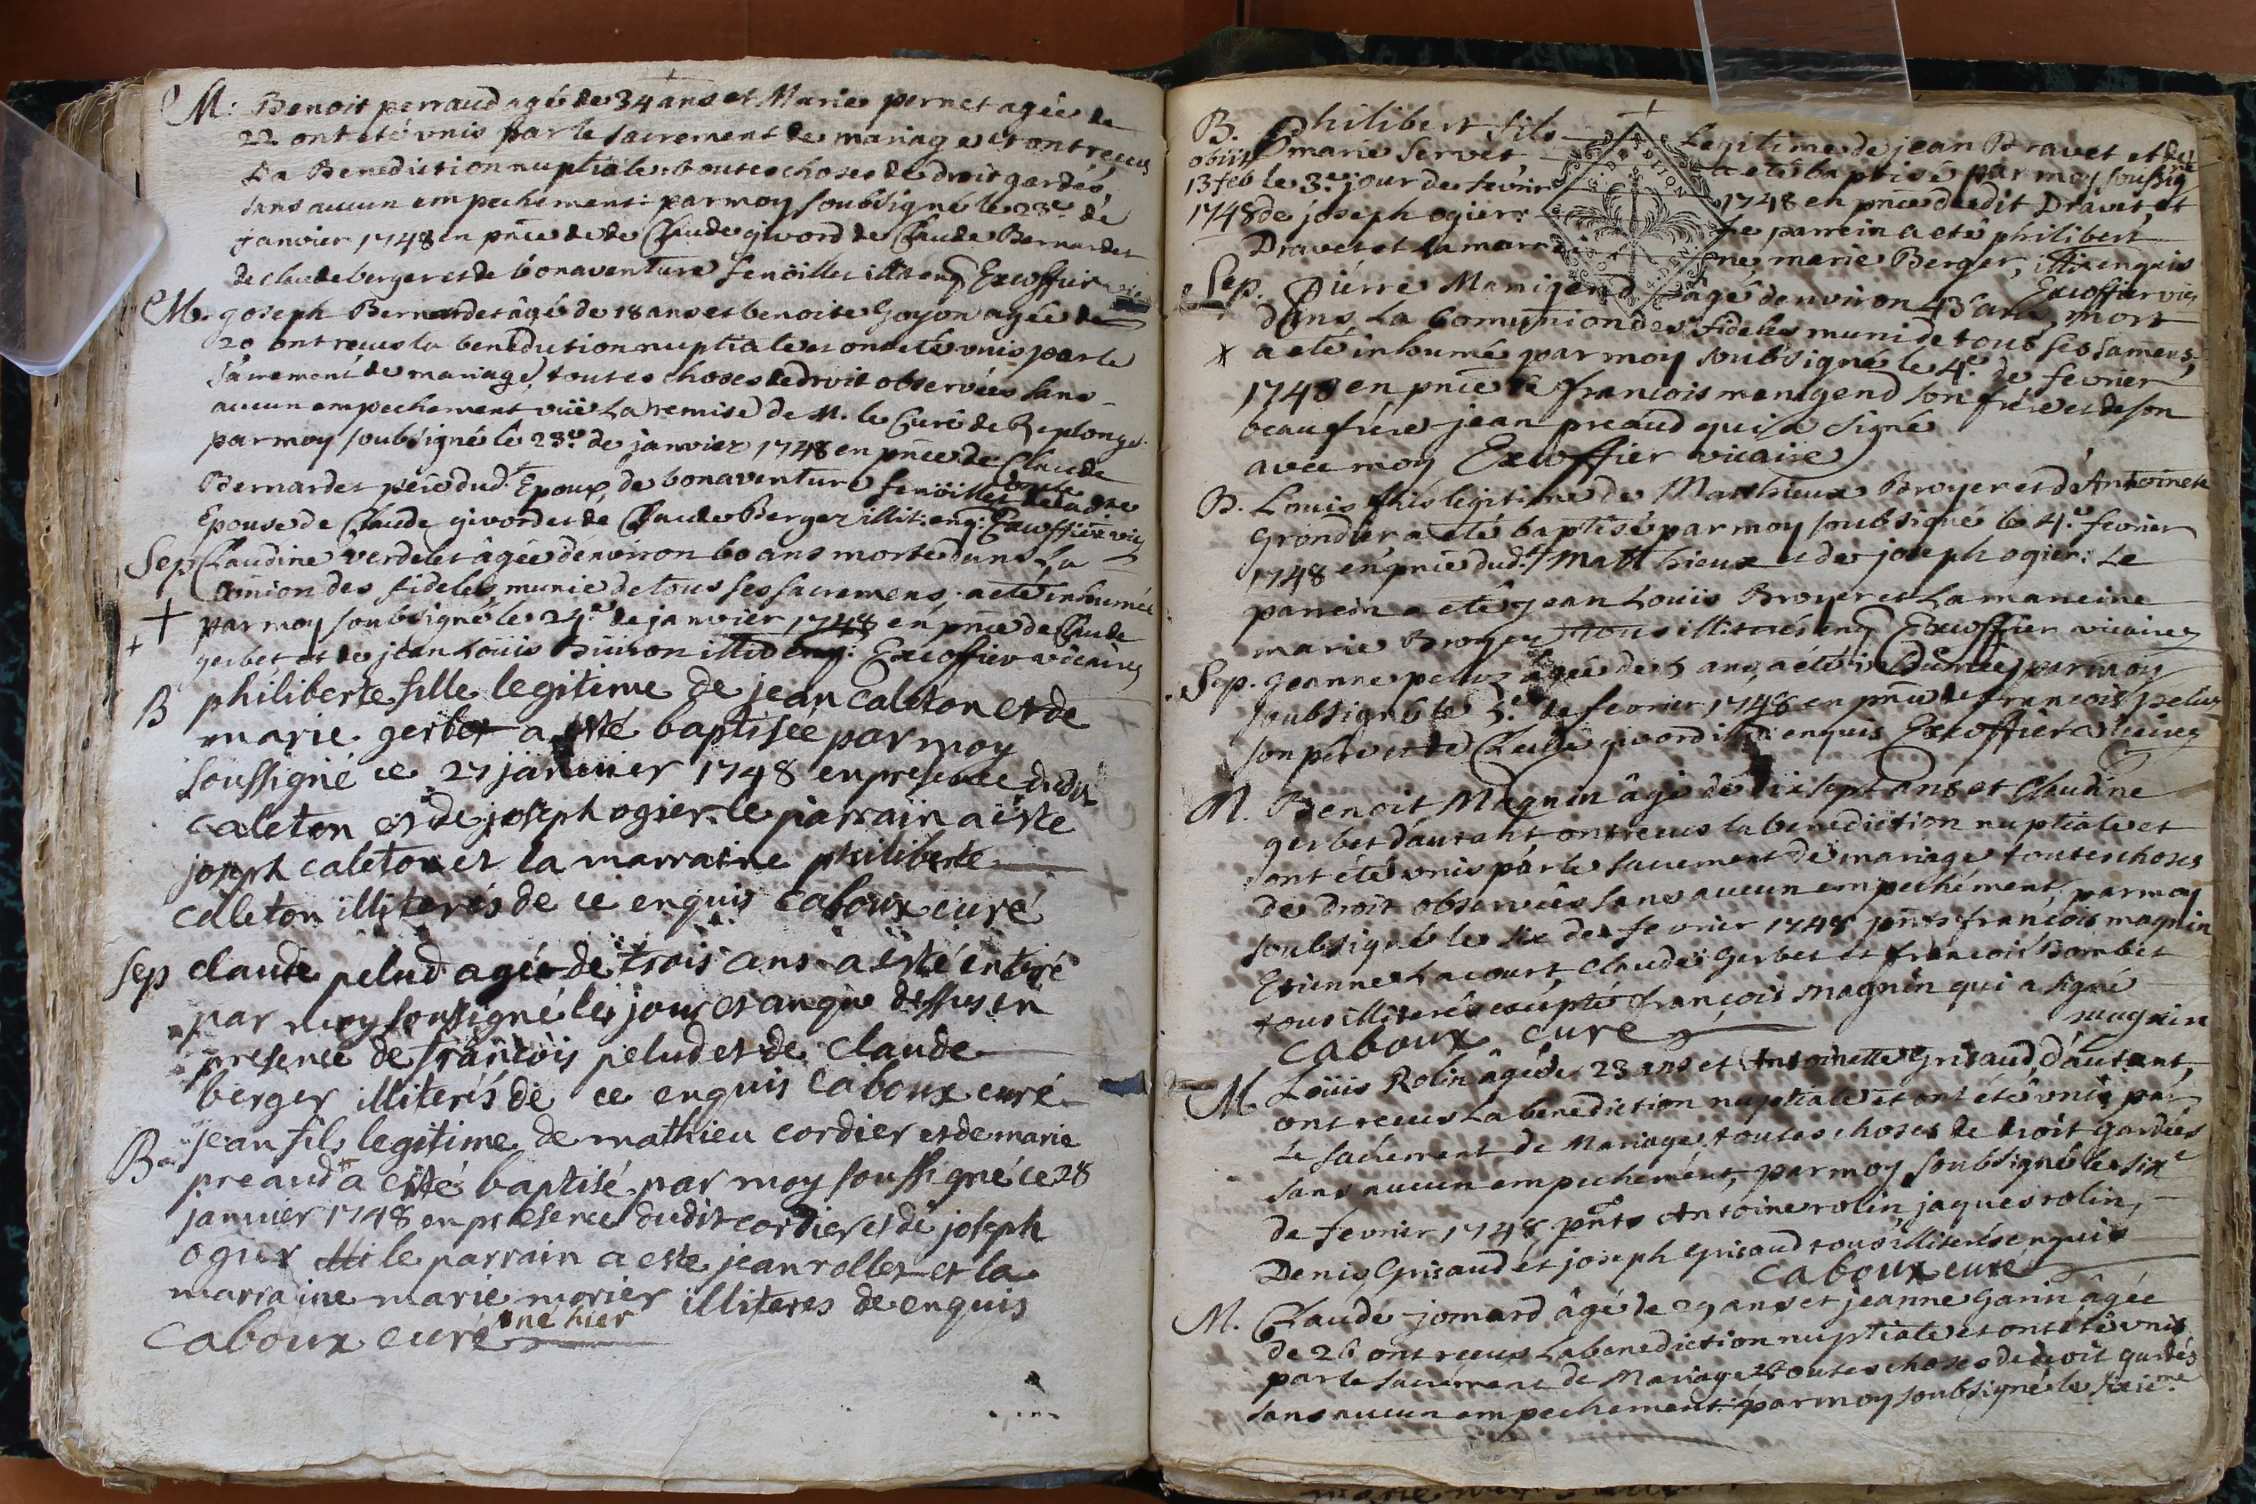 M: Benoit perraud agé de 34 ans et Marie pernet agée de
22 ont eté vnis par le sacrement de mariage et ont receu
La Benediction nuptiale toutes choses de droit gardés
sans aucun empechement par moy soubsigné le 23e de
janvier 1748 en pnce de de Claude givord de Claude Bernardet
de claude berger et de bonaventure fenöillet illit enq Excoffier
M. joseph Bernardet âgé de 18 ans et benoite Goyon agée de
20 ont receu la benediction nuptiale et ont eté vnis par le
sacrement de mariage, toutes choses de droit observées sans
aucun empechement vüe La remise de M. le Curé de Replonges
par moy soubsigné le 23e de janvier 1748 en pnce de Claude
Bernardet pere dud.t Epoux, de bonaventure fenöillet de ladne
Epouse de Claude givord et de Claude Berger illit: enq: Excoffier vic
Sep. Claudine verdelet âgée d'environ 60 ans morte dans La
Comnion des fideles, munie de tous ses sacremens, a eté inhumée
par moy soubsigné le 24e de janvier 1748 en pnce de Claude
gerbet et de jean Loüis Buiron illit enq: Excoffier vicaire
B philiberte fille legitime de jean caleton et de
marie gerbet a esté baptisée par moy
soussigné ce 27 janvier 1748 en presence dudit
caleton et de joseph ogier le parrain a este
joseph caleton et la marraine philiberte
caleton illiterés de ce enquis Caboux curé
Sep claude pelud agée de trois ans a esté enteré
par moy soussigné les jour et an que dessus en
presence de françois pelud et de claude
berger illiterés de ce enquis Caboux curé
B jean fils legitime de mathieu cordier et de marie
preaud a esté baptisé par moy soussigné ce 28
janvier 1748 en presence dudit cordier et de joseph
ogier illi le parrain a este jean rollet et la
marraine marie morier illiteres de enquis
Caboux curé né hier
B. Philibert fils Legitime de jean Dravet et de
obiit marie servet a eté baptisé par moy soussig
13 feb le 3e jour de fevrier 1748 en pnce dudit Dravet, et
1748 de joseph ogier: Le parrein a eté philibert
Dravet et la marreine marie Berger, illit enquis
Excoffier vic
Sep. Pierre Manigend âgé d'environ 43 ans mort
dans La Comunion des fideles muni de tous ses sacmens,
a eté inhumé par moy soubsigné le 4e de fevrier
1748 en pnce de francois manigend son frere et de son
beaufrere jean preaud qui a signé
avec moy Excoffier vicaire
B. Louis fils legitime de Matthieux Broyer et d'Antoinete
Grondier a eté baptisé par moy soubsigné le 4e fevrier
1748 en pnce dud.t Matthieux et de joseph ogier: Le
parrein a eté jean Louis Broyer et La mareine
marie Broyer tous illiterés enq Excoffier vicaire
Sep. jeanne peluz âgée de 5 ans a eté inhumée par moy
soubsigné le 5e de fevrier 1748 en pnce de francois peluz
son pere et de Claude givord illit enquis Excoffier vicaire
M. Benoit Magnin âgé de dix sept ans et Claudine
gerbet d'autant ont receus la benediction nuptiale et
ont été vnis par le sacrement de mariage toutes choses
de droit observées sans aucun empechément, par moy
soubsigné le six de fevrier 1748 pnts francois magnin
Etienne Lacourt, Claude Gerbet et françois Bombet
tous illiterés excepté françois magnin qui a signé
magnin
Caboux curé
M Loüis Rolin âgé de 23 ans et Antoinette Grisaud, d'autant,
ont receus La benediction nuptiale et ont été vnis par
Le sacrement de Mariage, toutes choses de droit gardées
sans aucun empechement, par moy soubsigné le six
de fevrier 1748 pnts Antoine rolin, jaques rolin,
Denis Grisaud et joseph Grisaud tous illiterés enquis
Caboux curé
M. Claude jomard âgé de 29 ans et jeanne Garin âgée
de 26 ont receus La benediction nuptiale et ont été vnis
par le sacrement de Mariage toutes choses de droit gardés
sans aucun empechement par moy soubsigné le sixieme